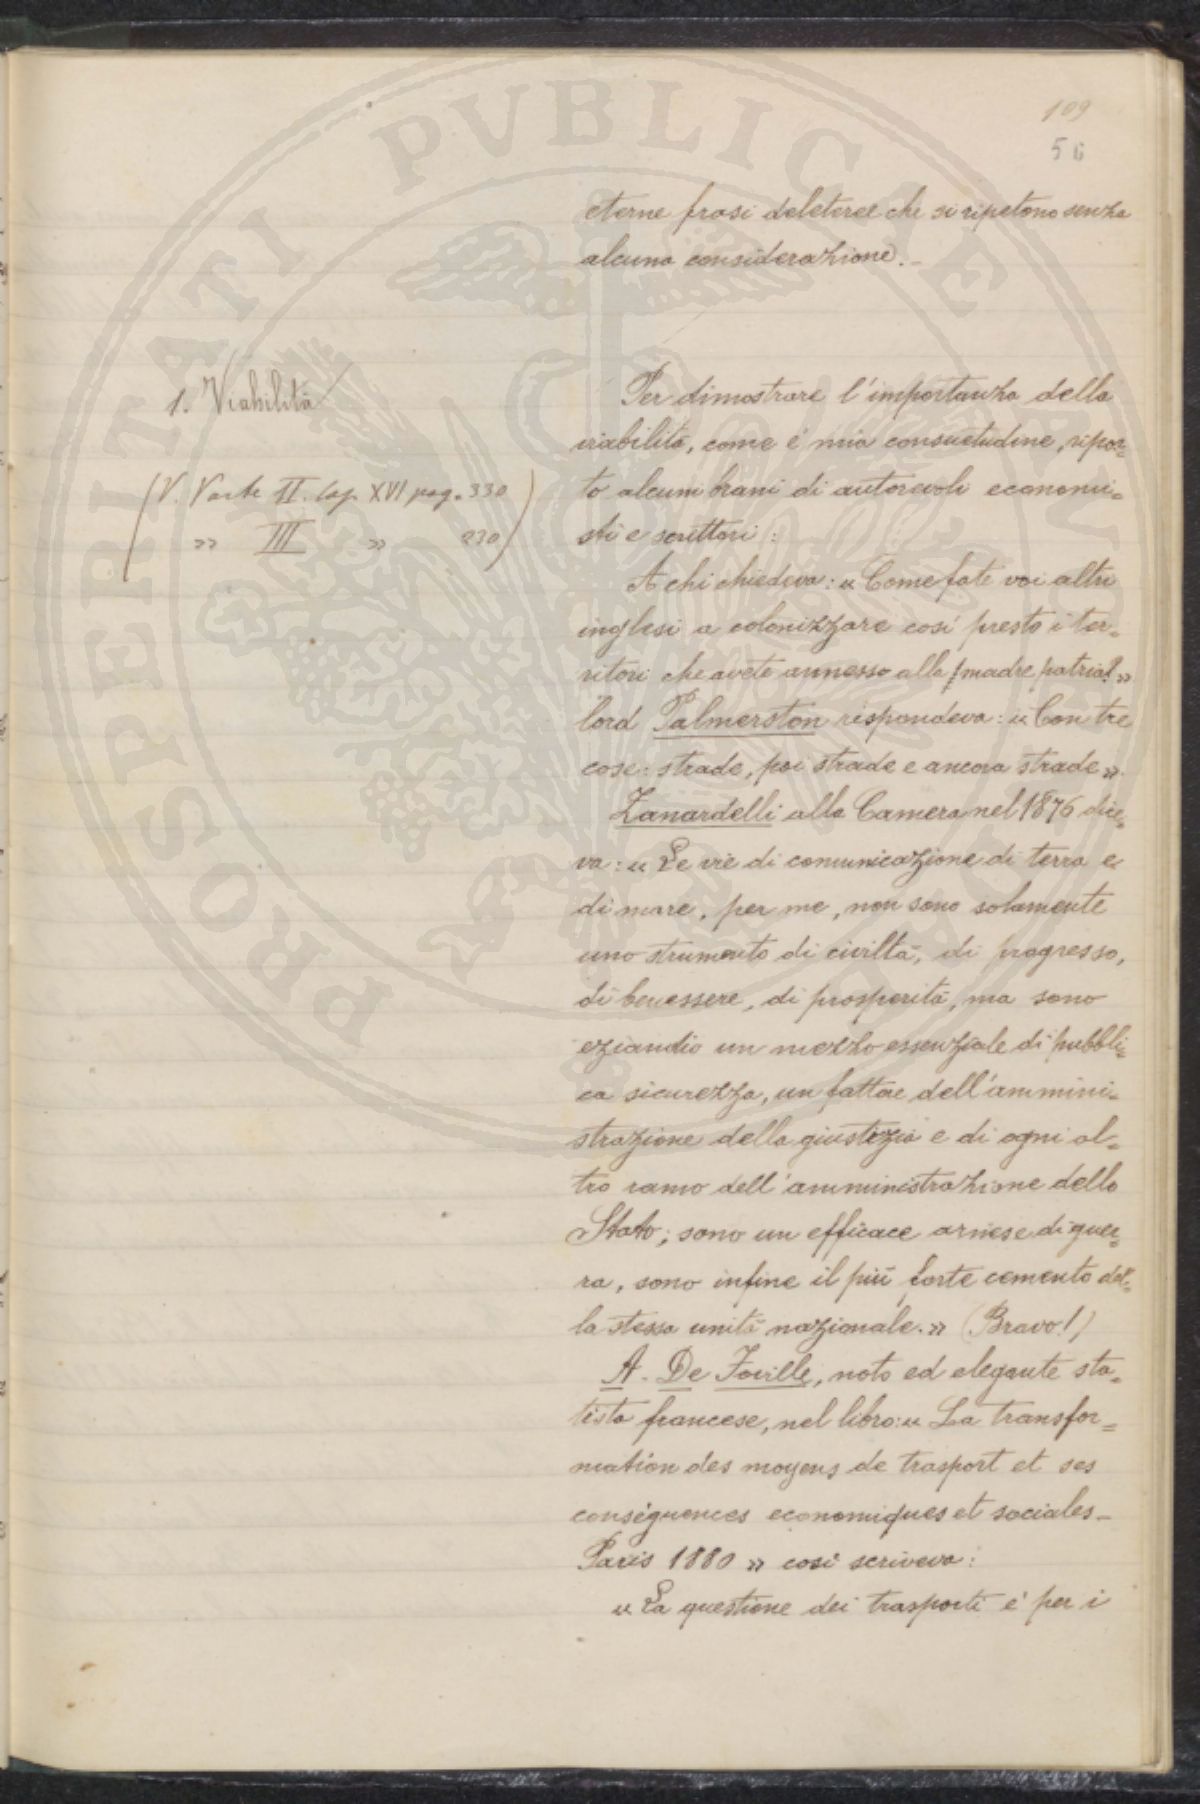 109
56
eterne frasi deleteree che si ripetono senza
alcuna considerazione.–
1. Viabilità
(V. Parte II. Cap. XVI pag. 330
» III » 230)
Per dimostrare l'importanza della
viabilità, come è mia consuetudine, ripor=
to alcuni brani di autorevoli economi=
sti e scrittori:
A chi chiedeva: « Come fate voi altri
inglesi a colonizzare così presto i ter=
ritori che avete annesso alla madre patria? »
lord Palmerston rispondeva: « Con tre
cose: strade, poi strade e ancora strade ».
Zanardelli alla Camera nel 1876 dice=
va: « Le vie di comunicazione di terra e
di mare, per me, non sono solamente
uno strumento di civiltà, di progresso,
di benessere, di prosperità, ma sono
eziandio un mezzo essenziale di pubbli=
ca sicurezza, un fattore dell'ammini=
strazione della giustizia e di ogni al=
tro ramo dell'amministrazione dello
Stato; sono un efficace arnese di guer=
ra, sono infine il più forte cemento del=
la stessa unità nazionale. » (Bravo!)
A. De Foville, noto ed elegante sta=
tista francese, nel libro: « La transfor=
mation des moyens de trasport et ses
conséquences economiques et sociales –
Paris 1880 » così scriveva:
« La questione dei trasporti è per i
PROSPERITATI PVBLICAE